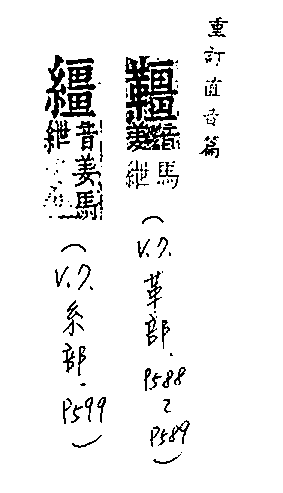 重訂直音篇
韁音姜馬紲(V.7.革部.P588~P589)
繮音姜馬紲(V.7.系部.P599)